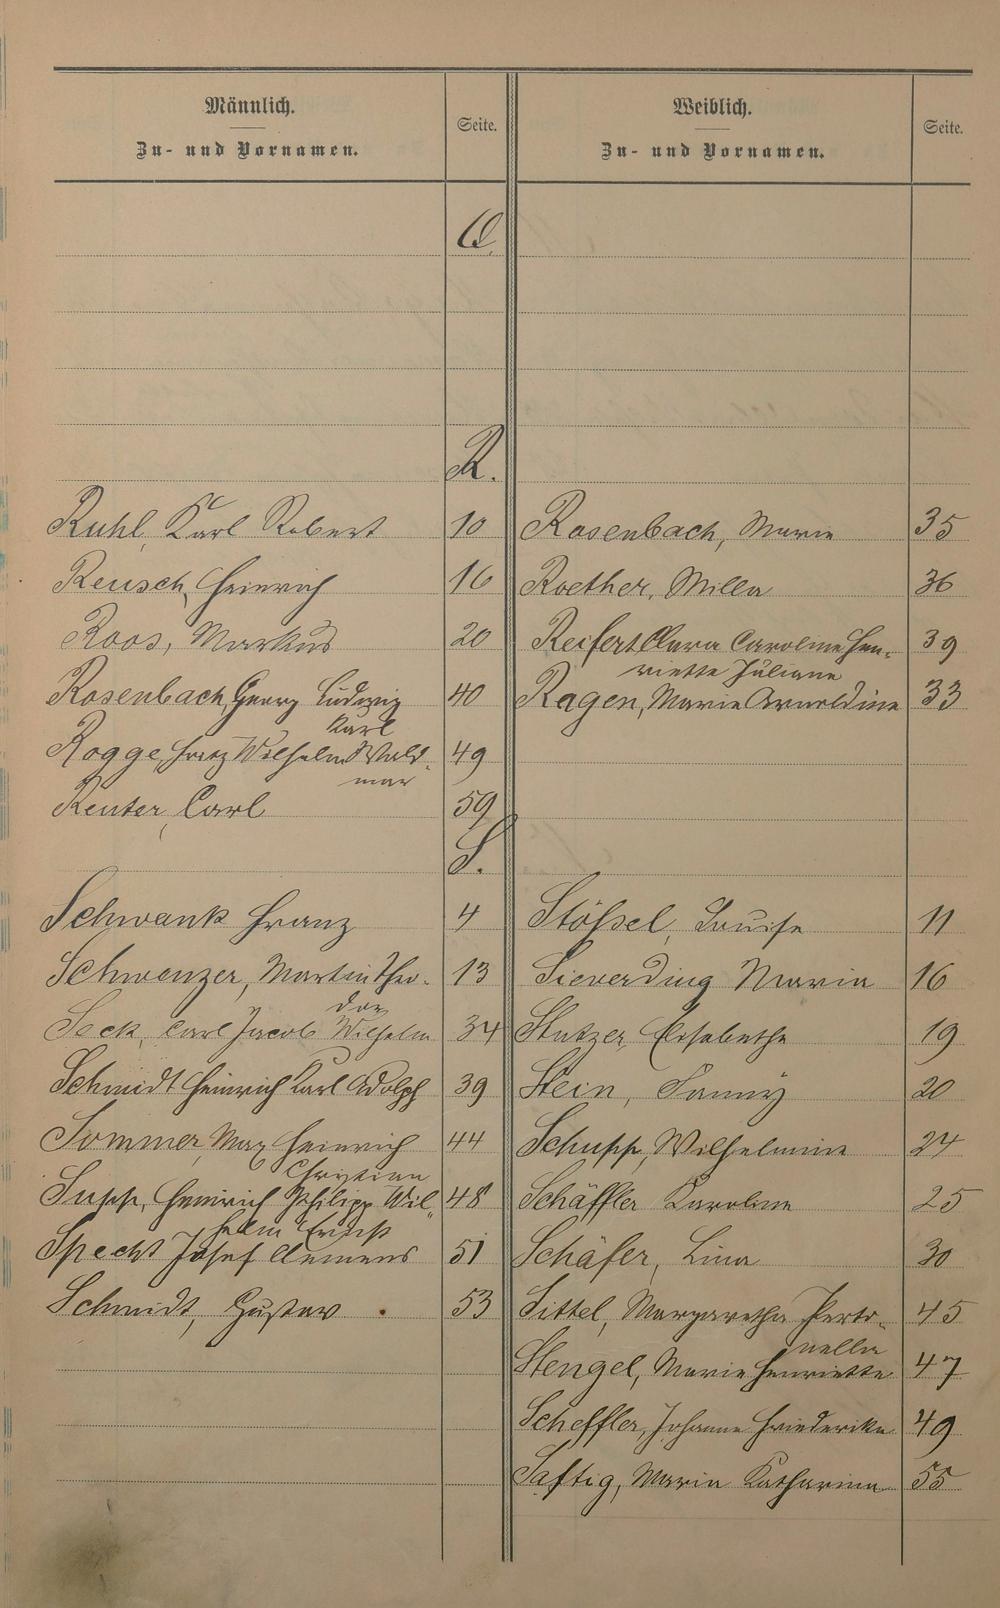 Männlich. Seite. Weiblich. Seite.
Zu- und Vornamen. Zu- und Vornamen.
Q.
R.
Ruhl, Karl Robert 10 Rosenbach, Marie 35
Reusch, Heinrich 16 Roether, Milla 36
Roos, Markus 20 Reifert Clara Caroline Hen- 39
riette Juliane
Rosenbach, Georg Ludwig 40 Ragen, Marie Arnoldine 33
Karl
Rogge, Fritz Wilhelm Wald- 49
mar
Reuter, Carl 59
S.
Schwank Franz 4 Stößel, Louise 11
Schwenzer, Martin Theo- 13 Sieverding Maria 16
dor
Seck, Carl Jacob Wilhelm 34 Stutzer, Elisabethe 19
Schmidt Heinrich Carl Adolph 39 Stein, Fanny 20
Sommer, Max Heinrich 44 Schupp, Wilhelmine 24
Christian
Supp, Heinrich Philipp Wil- 48 Schäffler Karoline 25
helm Ernst
Specht Josef Clemens 51 Schäfer, Lina 30
Schmidt, Gustav 53 Sittel, Margaretha Petro- 45
nella
Stengel, Marie Henriette 47
Scheffler, Johanne Friederike 49
Saftig, Maria Katharina 55